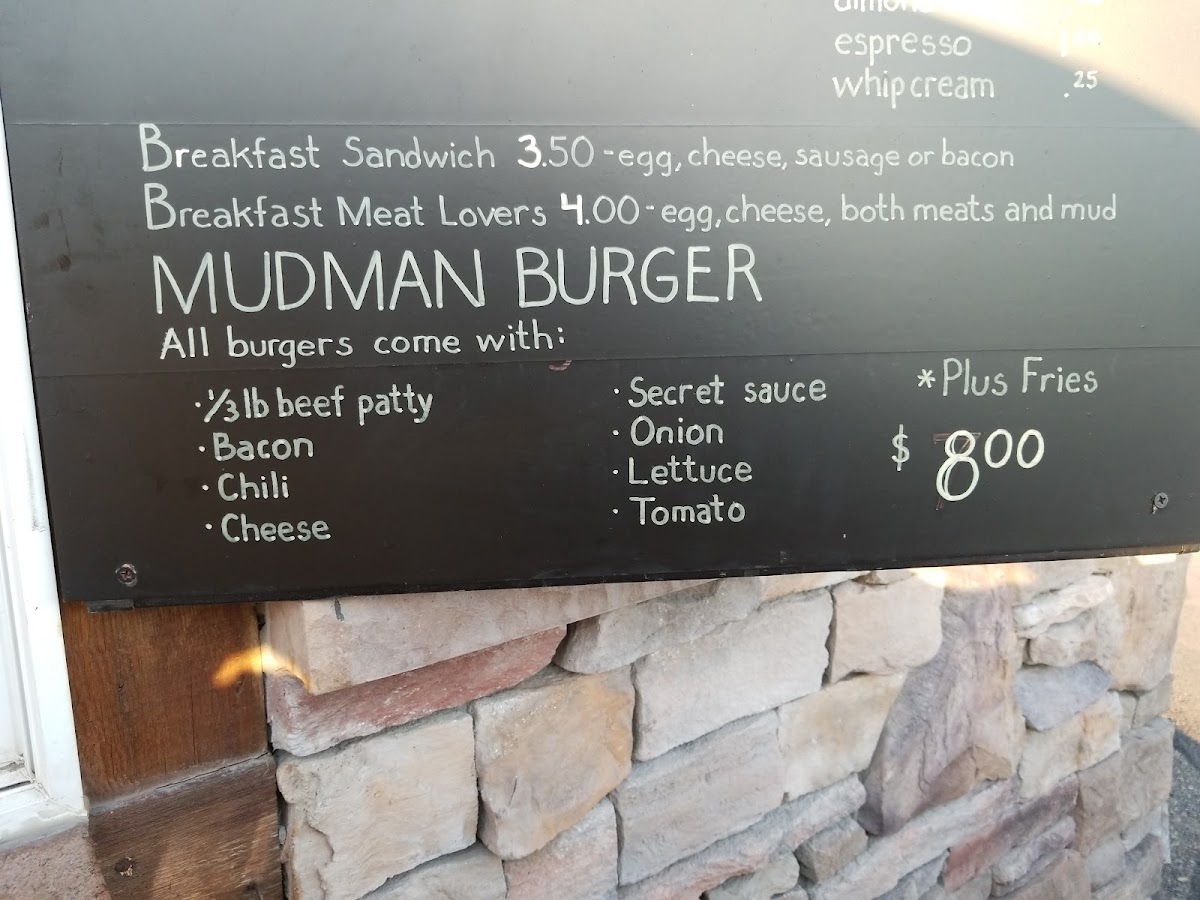 espresso
whip cream .25
Breakfast Sandwich 3.50 - egg, cheese, sausage or bacon
Breakfast Meat Lovers 4.00 - egg, cheese, both meats and mud
MUDMAN BURGER
All burgers come with:
· 1/3 lb beef patty
· Bacon
· Chili
· Cheese
· Secret sauce
· Onion
· Lettuce
· Tomato
*Plus Fries
$ 8.00